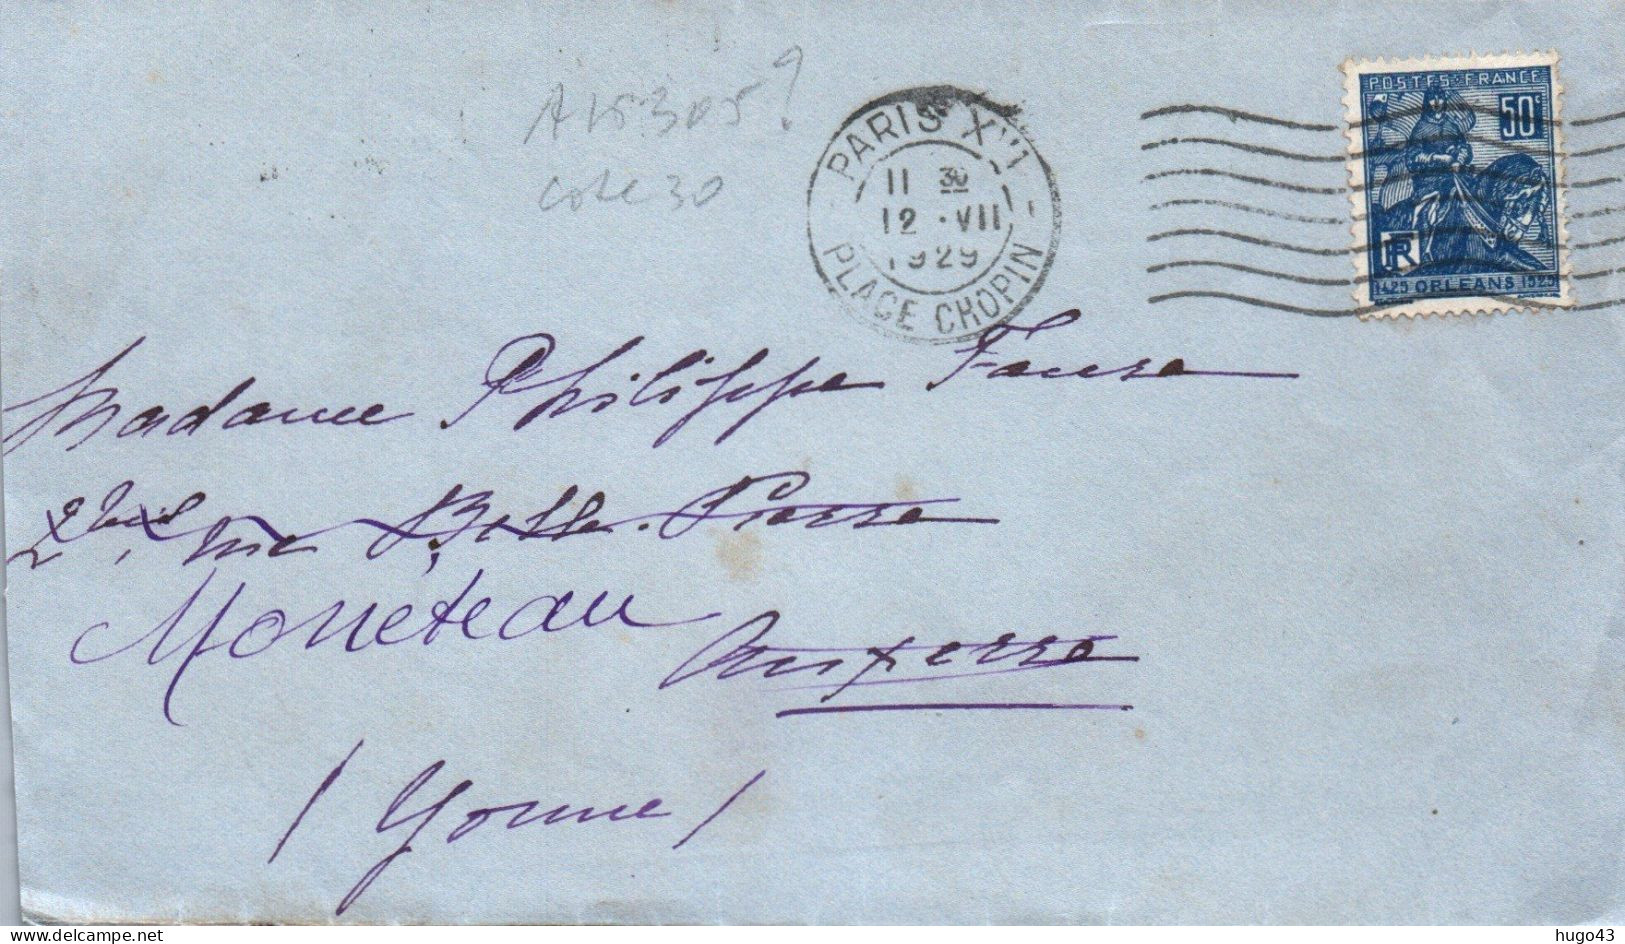 A15305?
cote 30
PARIS XVI
11 30
12 · VII
1929
PLACE CHOPIN
POSTES · FRANCE
50c
RF
1429 ORLEANS 1929
Madame Philippe Faure
rue Belle Pierre
Monéteau
Auxerre
(Yonne)
www.delcampe.net
hugo43